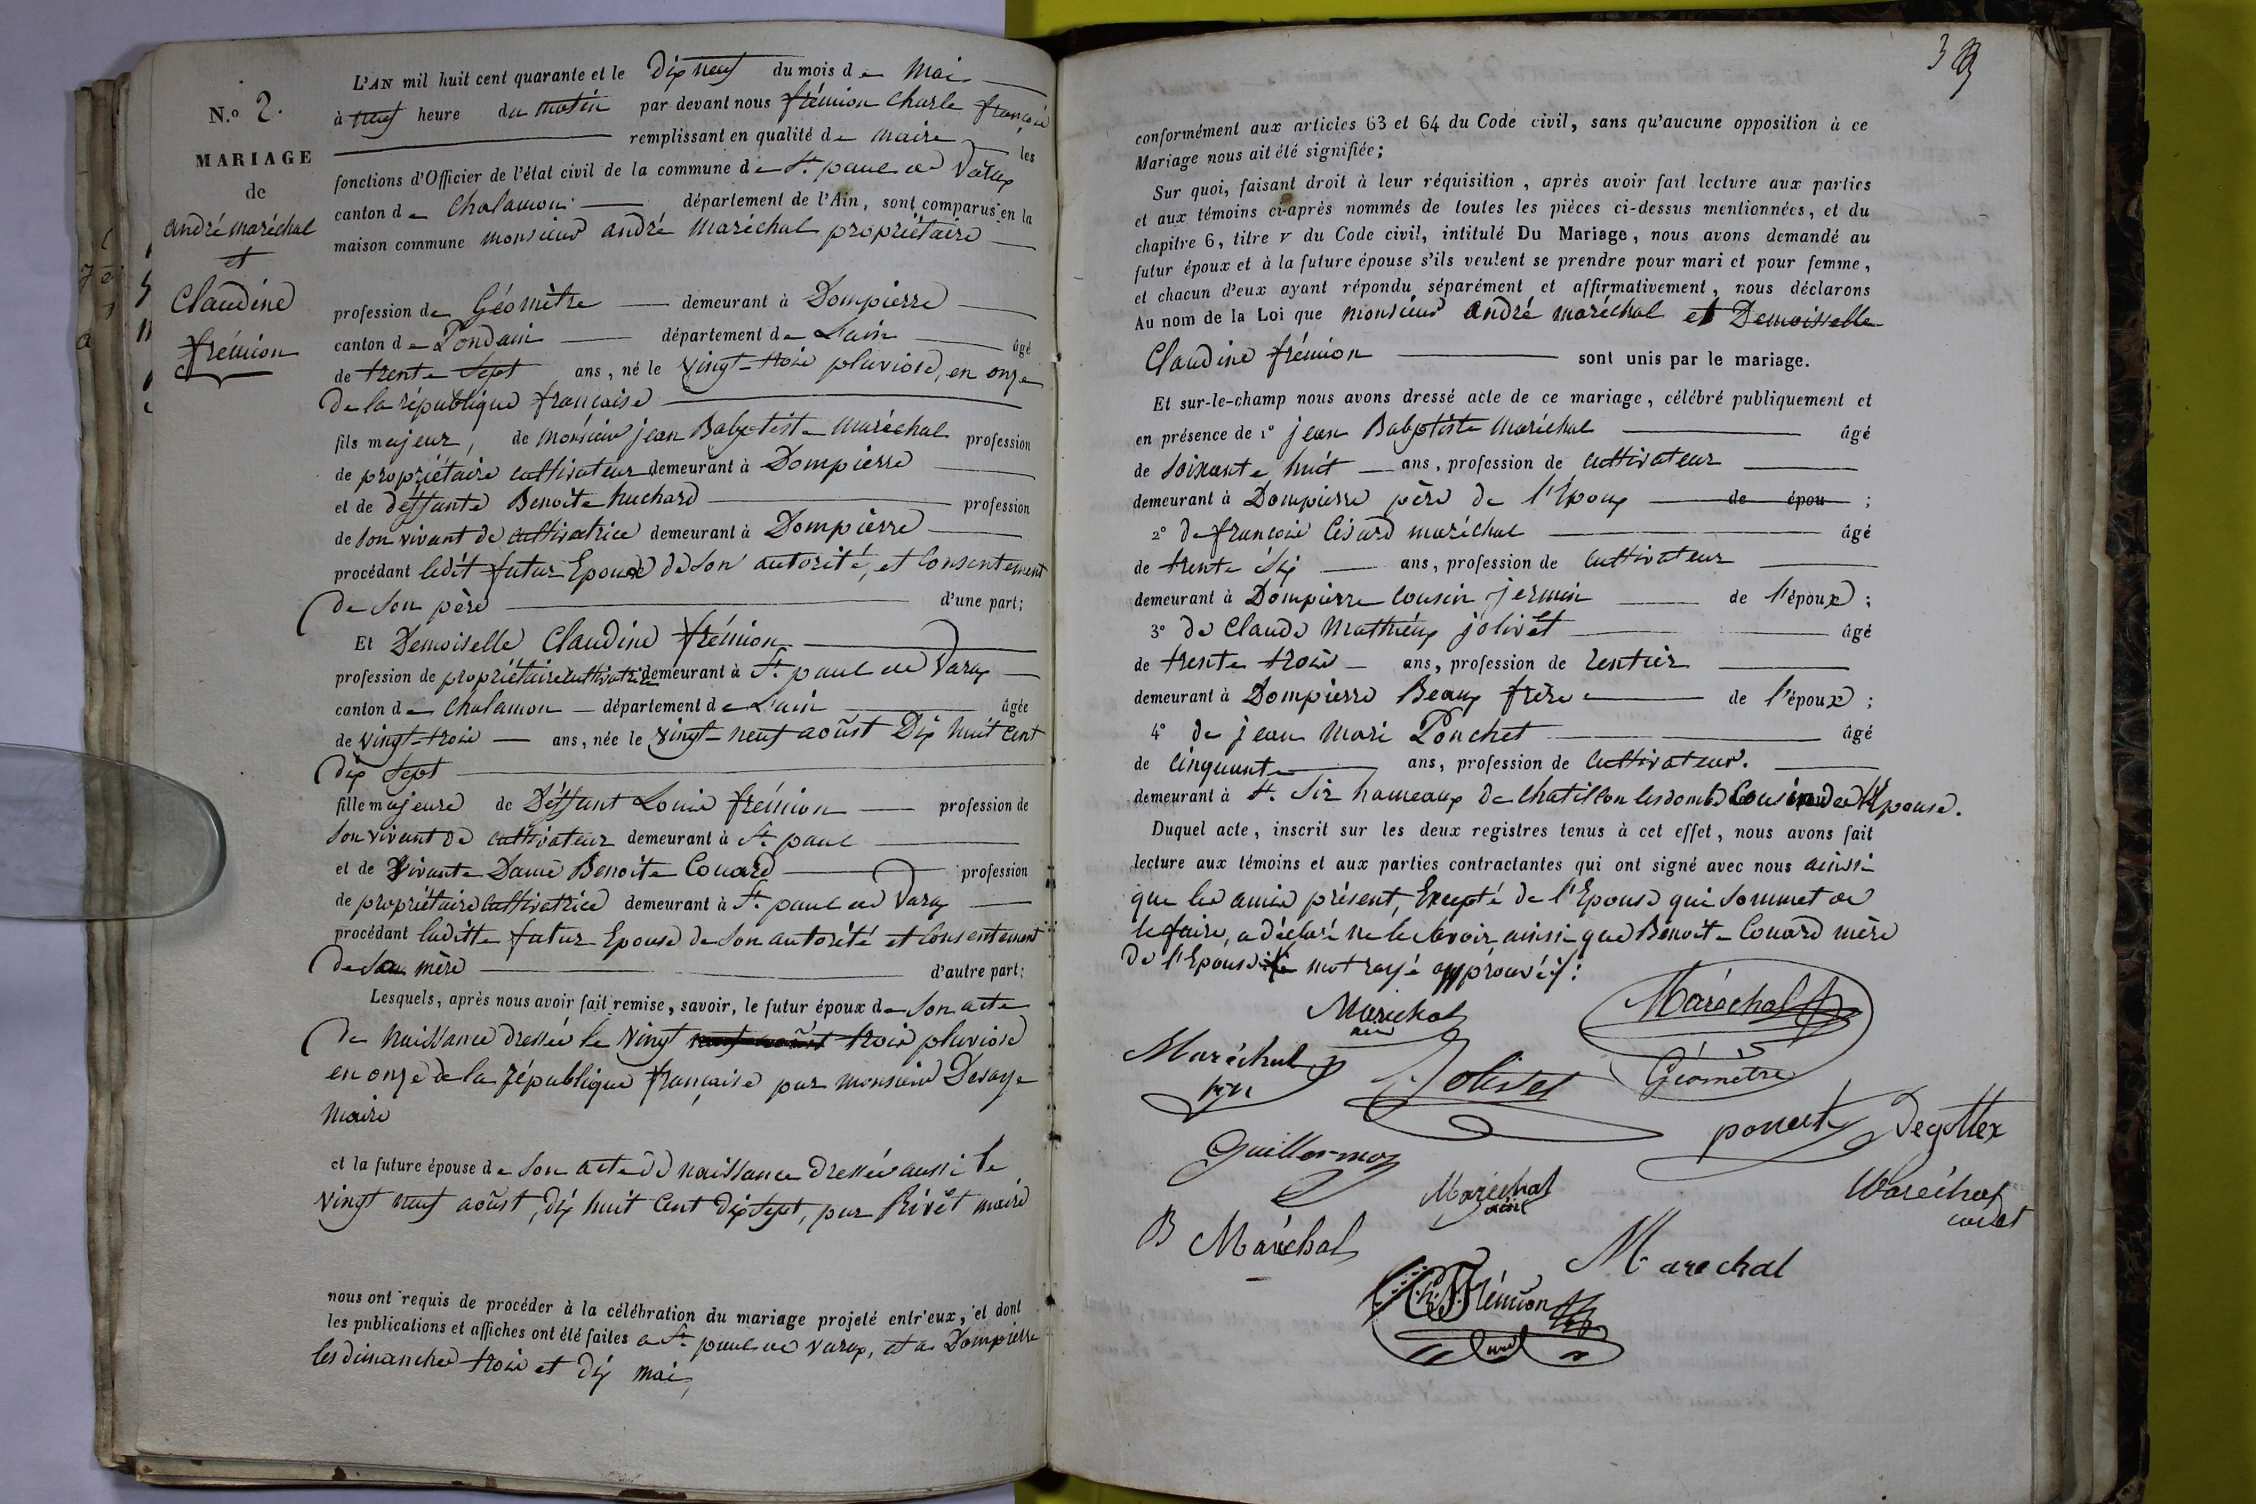 N.o 2.
MARIAGE
de
andré maréchal
et
Claudine
frémion
L'AN mil huit cent quarante et le Dix neuf du mois de Mai
à neuf heure du matin par devant nous frémion Charle françois
remplissant en qualité de maire les
fonctions d'Officier de l'état civil de la commune de St. paul de Varax
canton de Chalamon département de l'Ain, sont comparus en la
maison commune monsieur andré Maréchal propriétaire
profession de Géomètre demeurant à Dompierre
canton de Pondain département de L'ain âgé
de trente Sept ans, né le Vingt-trois pluviose, en onze
De la république française
fils majeur, de Monsieur jean Babptiste Maréchal profession
de propriétaire cultivateur demeurant à Dompierre
et de deffunte Benoite huchard profession
de son vivant de cultivatrice demeurant à Dompierre
procédant ledit futur Epoux de son autorité, et Consentement
de Son père d'une part;
Et Demoiselle Claudine frémion
profession de propriétaire cultivatrice demeurant à St. paul de Varax
canton de Chalamon département de L'ain âgée
de Vingt-trois ans, née le Vingt-neuf août Dix huit cent
dix Sept
fille majeure de Deffunt Louis frémion profession de
son vivant de cultivateur demeurant à St. paul
et de Vivante Dame Benoite Couard profession
de propriétaire cultivatrice demeurant à St. paul de Varax
procédant laditte futur Epouse de Son autorité et Consentement
de Sa mère d'autre part;
Lesquels, après nous avoir fait remise, savoir, le futur époux de Son acte
De naissance dressée le Vingt neuf août trois pluviose
en onze de la république française par monsieur Desaye
Maire
et la future épouse de Son acte de naissance dressée aussi le
Vingt neuf août, dix huit Cent dix sept, par Rivet maire
nous ont requis de procéder à la célébration du mariage projeté entr'eux, et dont
les publications et affiches ont été faites a St. paul de Varax, et a Dompierre
les dimanches trois et dix mai,
3
conformément aux articles 63 et 64 du Code civil, sans qu'aucune opposition à ce
Mariage nous ait été signifiée;
Sur quoi, faisant droit à leur réquisition, après avoir fait lecture aux parties
et aux témoins ci-après nommés de toutes les pièces ci-dessus mentionnées, et du
chapitre 6, titre V du Code civil, intitulé Du Mariage, nous avons demandé au
futur époux et à la future épouse s'ils veulent se prendre pour mari et pour femme,
et chacun d'eux ayant répondu séparément et affirmativement, nous déclarons
Au nom de la Loi que monsieur André maréchal et Demoisselle
Claudine frémion sont unis par le mariage.
Et sur-le-champ nous avons dressé acte de ce mariage, célébré publiquement et
en présence de 1° jean Babptiste Maréchal âgé
de soixante huit ans, profession de cultivateur
demeurant à Dompierre père de l'Epoux de épou ;
2° de françois Césard maréchal âgé
de trente Six ans, profession de cultivateur
demeurant à Dompierre Cousin jermin de l'époux ;
3° de Claude Mathieux jolivet âgé
de trente trois ans, profession de rentier
demeurant à Dompierre Beaux frère de l'époux ;
4° de jean Mari Ponchet âgé
de Cinquante ans, profession de cultivateur.
demeurant à St. Sir hameaux de Chatillon lesdombe Cousin de l'Epouse.
Duquel acte, inscrit sur les deux registres tenus à cet effet, nous avons fait
lecture aux témoins et aux parties contractantes qui ont signé avec nous ainssi
que les amis présent, Excepté de l'Epouse qui Sommet de
le faire, a déclaré ne le savoir, ainsi que Benoite Couard mère
De l'Epouse le mot rayé approuvés:
Maréchal
Maréchal
Géomètre
Maréchal
Jolivet
ponchet
Degottex
Guillermoz
Maréchal
ainé
Maréchal
cadet
B Maréchal
Marechal
Ch. Frémion